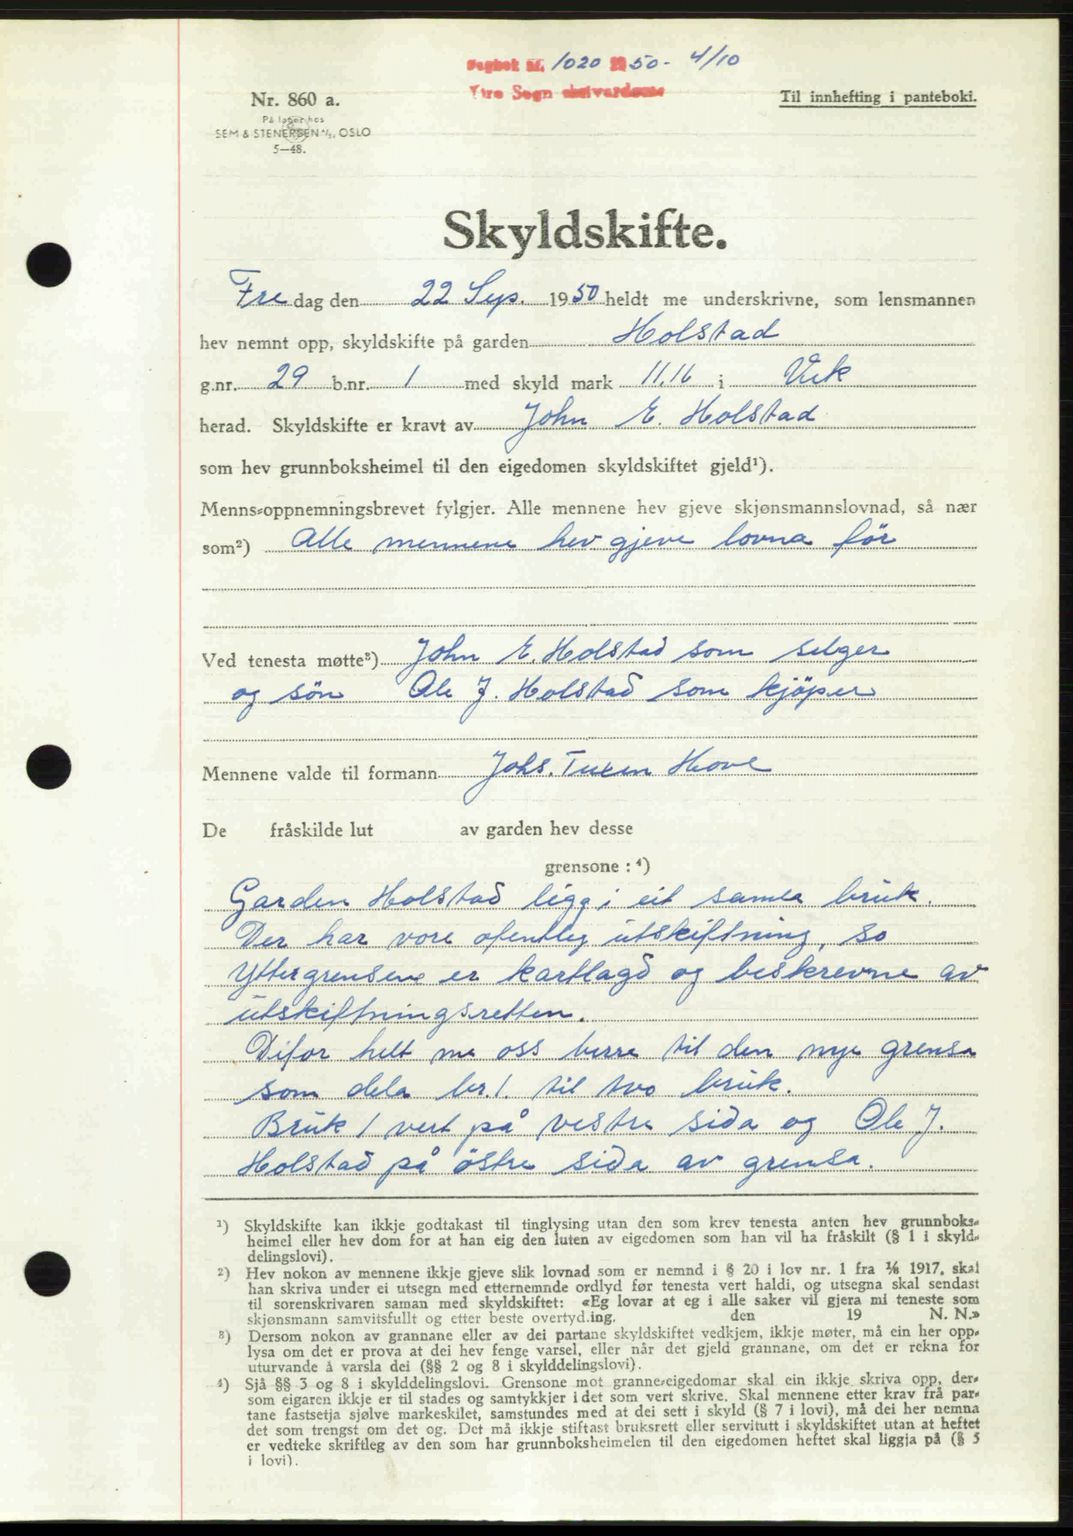 Dagbok nr. 1020 1950 - 4/10
Ytre Sogn
Nr. 860 a.
Til innhefting i panteboki.
På lager hos
SEM & STENERSEN A/S, OSLO
5—48.
Skyldskifte.
Fredag den 22 Sep. 1950 heldt me underskrivne, som lensmannen
hev nemnt opp, skyldskifte på garden Holstad
g.nr. 29 b.nr. 1 med skyld mark 11,16 i Vik
herad. Skyldskifte er kravt av John E. Holstad
som hev grunnboksheimel til den eigedomen skyldskiftet gjeld¹).
Menns-oppnemningsbrevet fylgjer. Alle mennene hev gjeve skjønsmannslovnad, så nær
som²) Alle mennene hev gjeve lovna før
Ved tenesta møtte³) John E. Holstad som selger
og sön Ole J. Holstad som kjöper
Mennene valde til formann Johs. Turen Hove
De fråskilde lut av garden hev desse
grensone : ⁴)
Garden Holstad ligg i eit samla bruk.
Der har vore ofentleg utskiftning, so
Yttergrensene er kartlagd og beskrevne av
utskiftningsretten.
Difor helt me oss berre til den nye grensa
som dela br. 1. til tvo bruk.
Bruk 1 vert på vestre sida og Ole J.
Holstad på östre sida av grensa.
¹) Skyldskifte kan ikkje godtakast til tinglysing utan den som krev tenesta anten hev grunnboks-
heimel eller hev dom for at han eig den luten av eigedomen som han vil ha fråskilt (§ 1 i skyld-
delingslovi).
²) Hev nokon av mennene ikkje gjeve slik lovnad som er nemnd i § 20 i lov nr. 1 fra 1/6 1917, skal
han skriva under ei utsegn med etternemnde ordlyd før tenesta vert haldi, og utsegna skal sendast
til sorenskrivaren saman med skyldskiftet: «Eg lovar at eg i alle saker vil gjera mi teneste som
skjønsmann samvitsfullt og etter beste overtyding. den 19 N. N.»
³) Dersom nokon av grannane eller av dei partane skyldskiftet vedkjem, ikkje møter, må ein her opp-
lysa om det er prova at dei hev fenge varsel, eller når det gjeld grannane, om det er rekna for
uturvande å varsla dei (§§ 2 og 8 i skylddelingslovi).
⁴) Sjå §§ 3 og 8 i skylddelingslovi. Grensone mot granne-eigedomar skal ein ikkje skriva opp, der-
som eigaren ikkje er til stades og samtykkjer i det som vert skrive. Skal mennene etter krav frå par-
tane fastsetja sjølve markeskilet, samstundes med at dei sett i skyld (§ 7 i lovi), må dei her nemna
det som trengst om det og. Det må ikkje stiftast bruksrett eller servitutt i skyldskiftet utan at heftet
er vedteke skriftleg av den som har grunnboksheimelen til den eigedomen heftet skal liggja på (§ 5
i lovi).